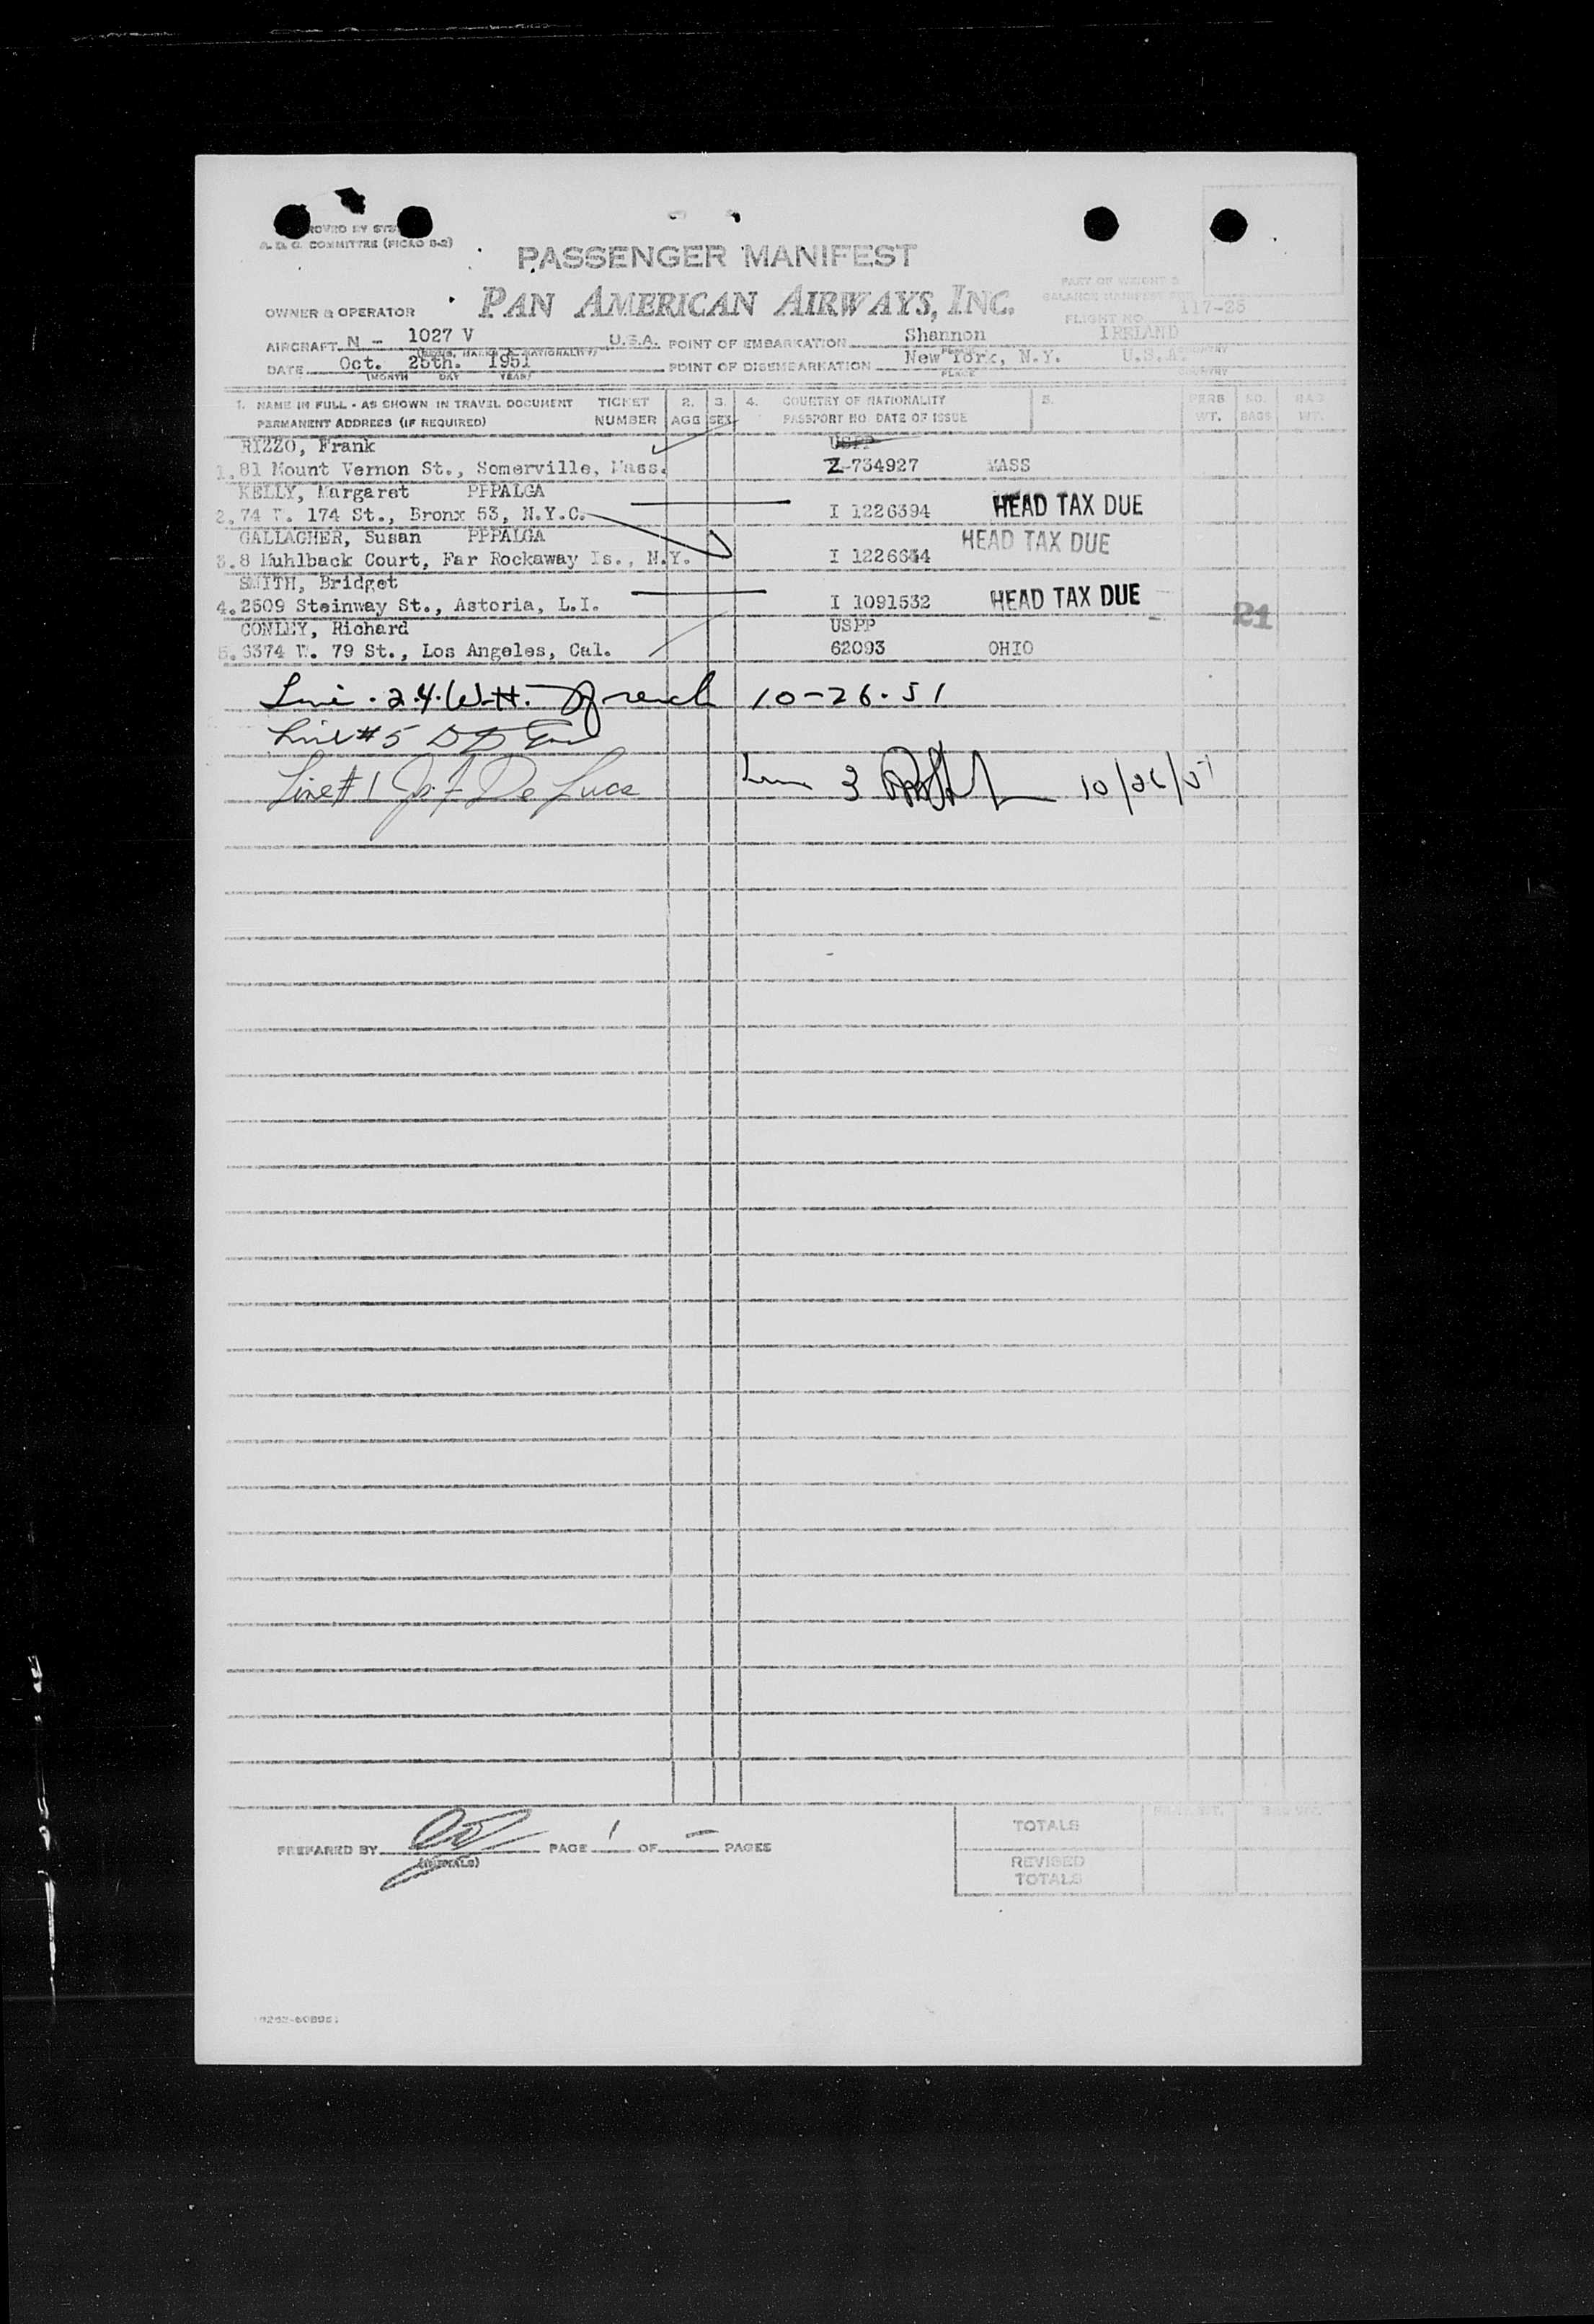 A. D. C. COMMITTEE (MICRO B-2)
PASSENGER MANIFEST
PART OF WEIGHT &
BALANCE MANIFEST
OWNER & OPERATOR PAN AMERICAN AIRWAYS, INC.
FLIGHT NO. 117-25
AIRCRAFT N - 1027 V U.S.A. POINT OF EMBARKATION Shannon IRELAND
DATE Oct. 25th. 1951 POINT OF DISEMBARKATION New York, N.Y. U.S.A.
(MONTH DAY YEAR) PLACE COUNTRY
1. NAME IN FULL - AS SHOWN IN TRAVEL DOCUMENT TICKET 2. 3. 4. COUNTRY OF NATIONALITY 5. PERS NO. BAG
PERMANENT ADDRESS (IF REQUIRED) NUMBER AGE SEX PASSPORT NO DATE OF ISSUE WT. BAGS WT.
RIZZO, Frank USPP
1. 81 Mount Vernon St., Somerville, Mass. Z-734927 MASS
KELLY, Margaret PPPALGA
2. 74 W. 174 St., Bronx 53, N.Y.C. I 1226394 HEAD TAX DUE
GALLAGHER, Susan PPPALGA HEAD TAX DUE
3. 8 Muhlback Court, Far Rockaway Is., N.Y. I 1226634
SMITH, Bridget
4. 2509 Steinway St., Astoria, L.I. I 1091532 HEAD TAX DUE
21
CONLEY, Richard USPP
5. 6374 W. 79 St., Los Angeles, Cal. 62093 OHIO
Line . 2.4. W.H. French 10-26-51
Line #5
Line #1 De Luca Line 3 10/26/51
TOTALS
PREPARED BY (INITIALS) PAGE 1 OF PAGES
REVISED
TOTALS